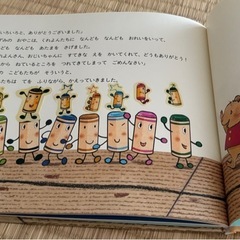 いろいろと、ありがとうございました。
ずみの おやこは、くれよんたちに なんども なんども おれいをいって、
ども なんども あたまを さげました。
よんさん、おじいちゃんに すてきな えを かいてくれて、どうもありがとう！
から ねているところを つれてきてしまって ごめんなさい」
の こどもたちが そういうと、
たちは てを ふりながら、かえっていきました。